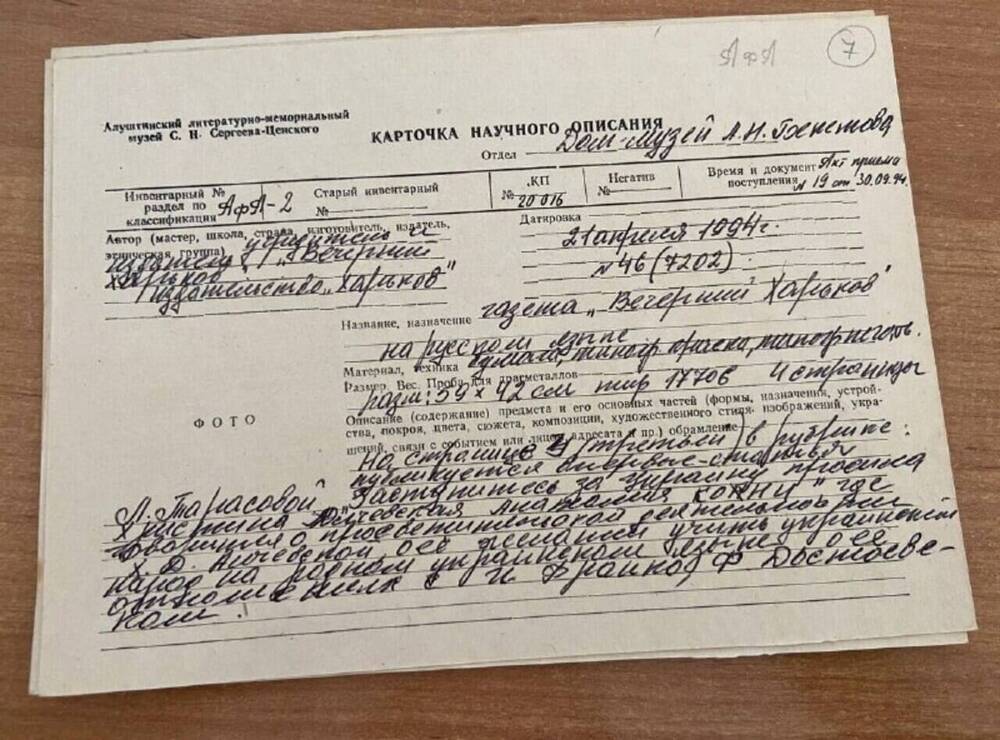 АфЛ
7
Алуштинский литературно-мемориальный
музей С. Н. Сергеева-Ценского
КАРТОЧКА НАУЧНОГО ОПИСАНИЯ
Отдел Дом-музей А.Н. Бекетова
Инвентарный №
раздел по
классификации АфЛ-2
Старый инвентарный
№
КП
№ 20 016
Негатив
№
Время и документ Акт приема
поступления N 19 от 30.09.94.
Автор (мастер, школа, страна, изготовитель, издатель,
этническая группа) учредитель и
издатель „Вечерний
Харьков"
Издательство „Харьков"
Датировка
21 апреля 1994г.
N 46 (7202)
Название, назначение газета „Вечерний Харьков"
на русском языке
Материал, техника бумага, типогр. краска, типогр.
Размер. Вес. Проба для драгметаллов
разм: 59 х 42 см тир 17706 4 страницы
Описание (содержание) предмета и его основных частей (формы, назначения, устрой-
ства, покроя, цвета, сюжета, композиции, художественного стиля, изображений, укра-
шений, связи с событием или лицом, адресата и пр.) обрамление
ФОТО
На странице третьей в рубрике:
публикуется
Л. Тарасовой „Заступитесь за Украину просила
Христина Алчевская где
говорится о просветительской деятельности
Х. Д. Алчевской о её желании учить украинский
народ на родном украинском языке о её
отношениях с И. Франко, Ф Достоевс-
ким.